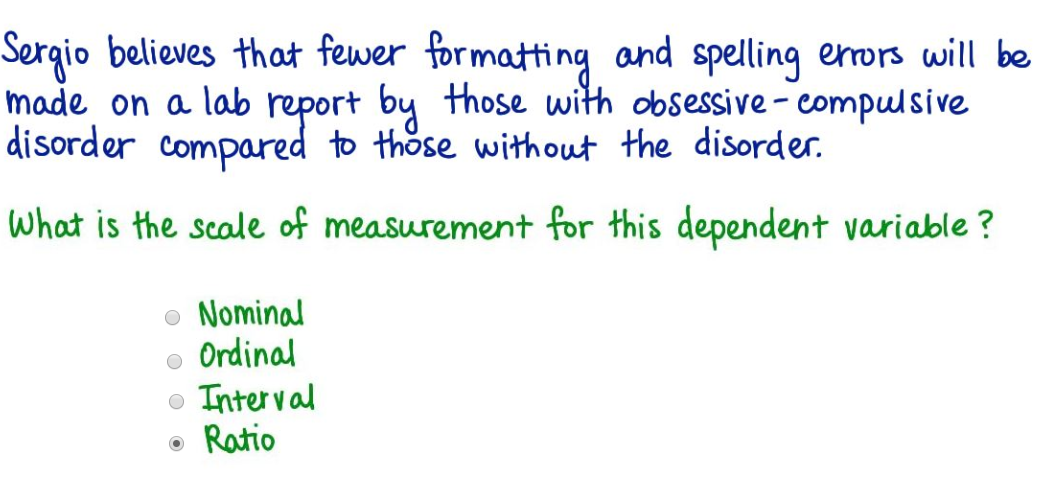 Sergio believes that fewer formatting and spelling errors will be
made on a lab report by those with obsessive-compulsive
disorder compared to those without the disorder.
What is the scale of measurement for this dependent variable?
Nominal
Ordinal
Interval
Ratio